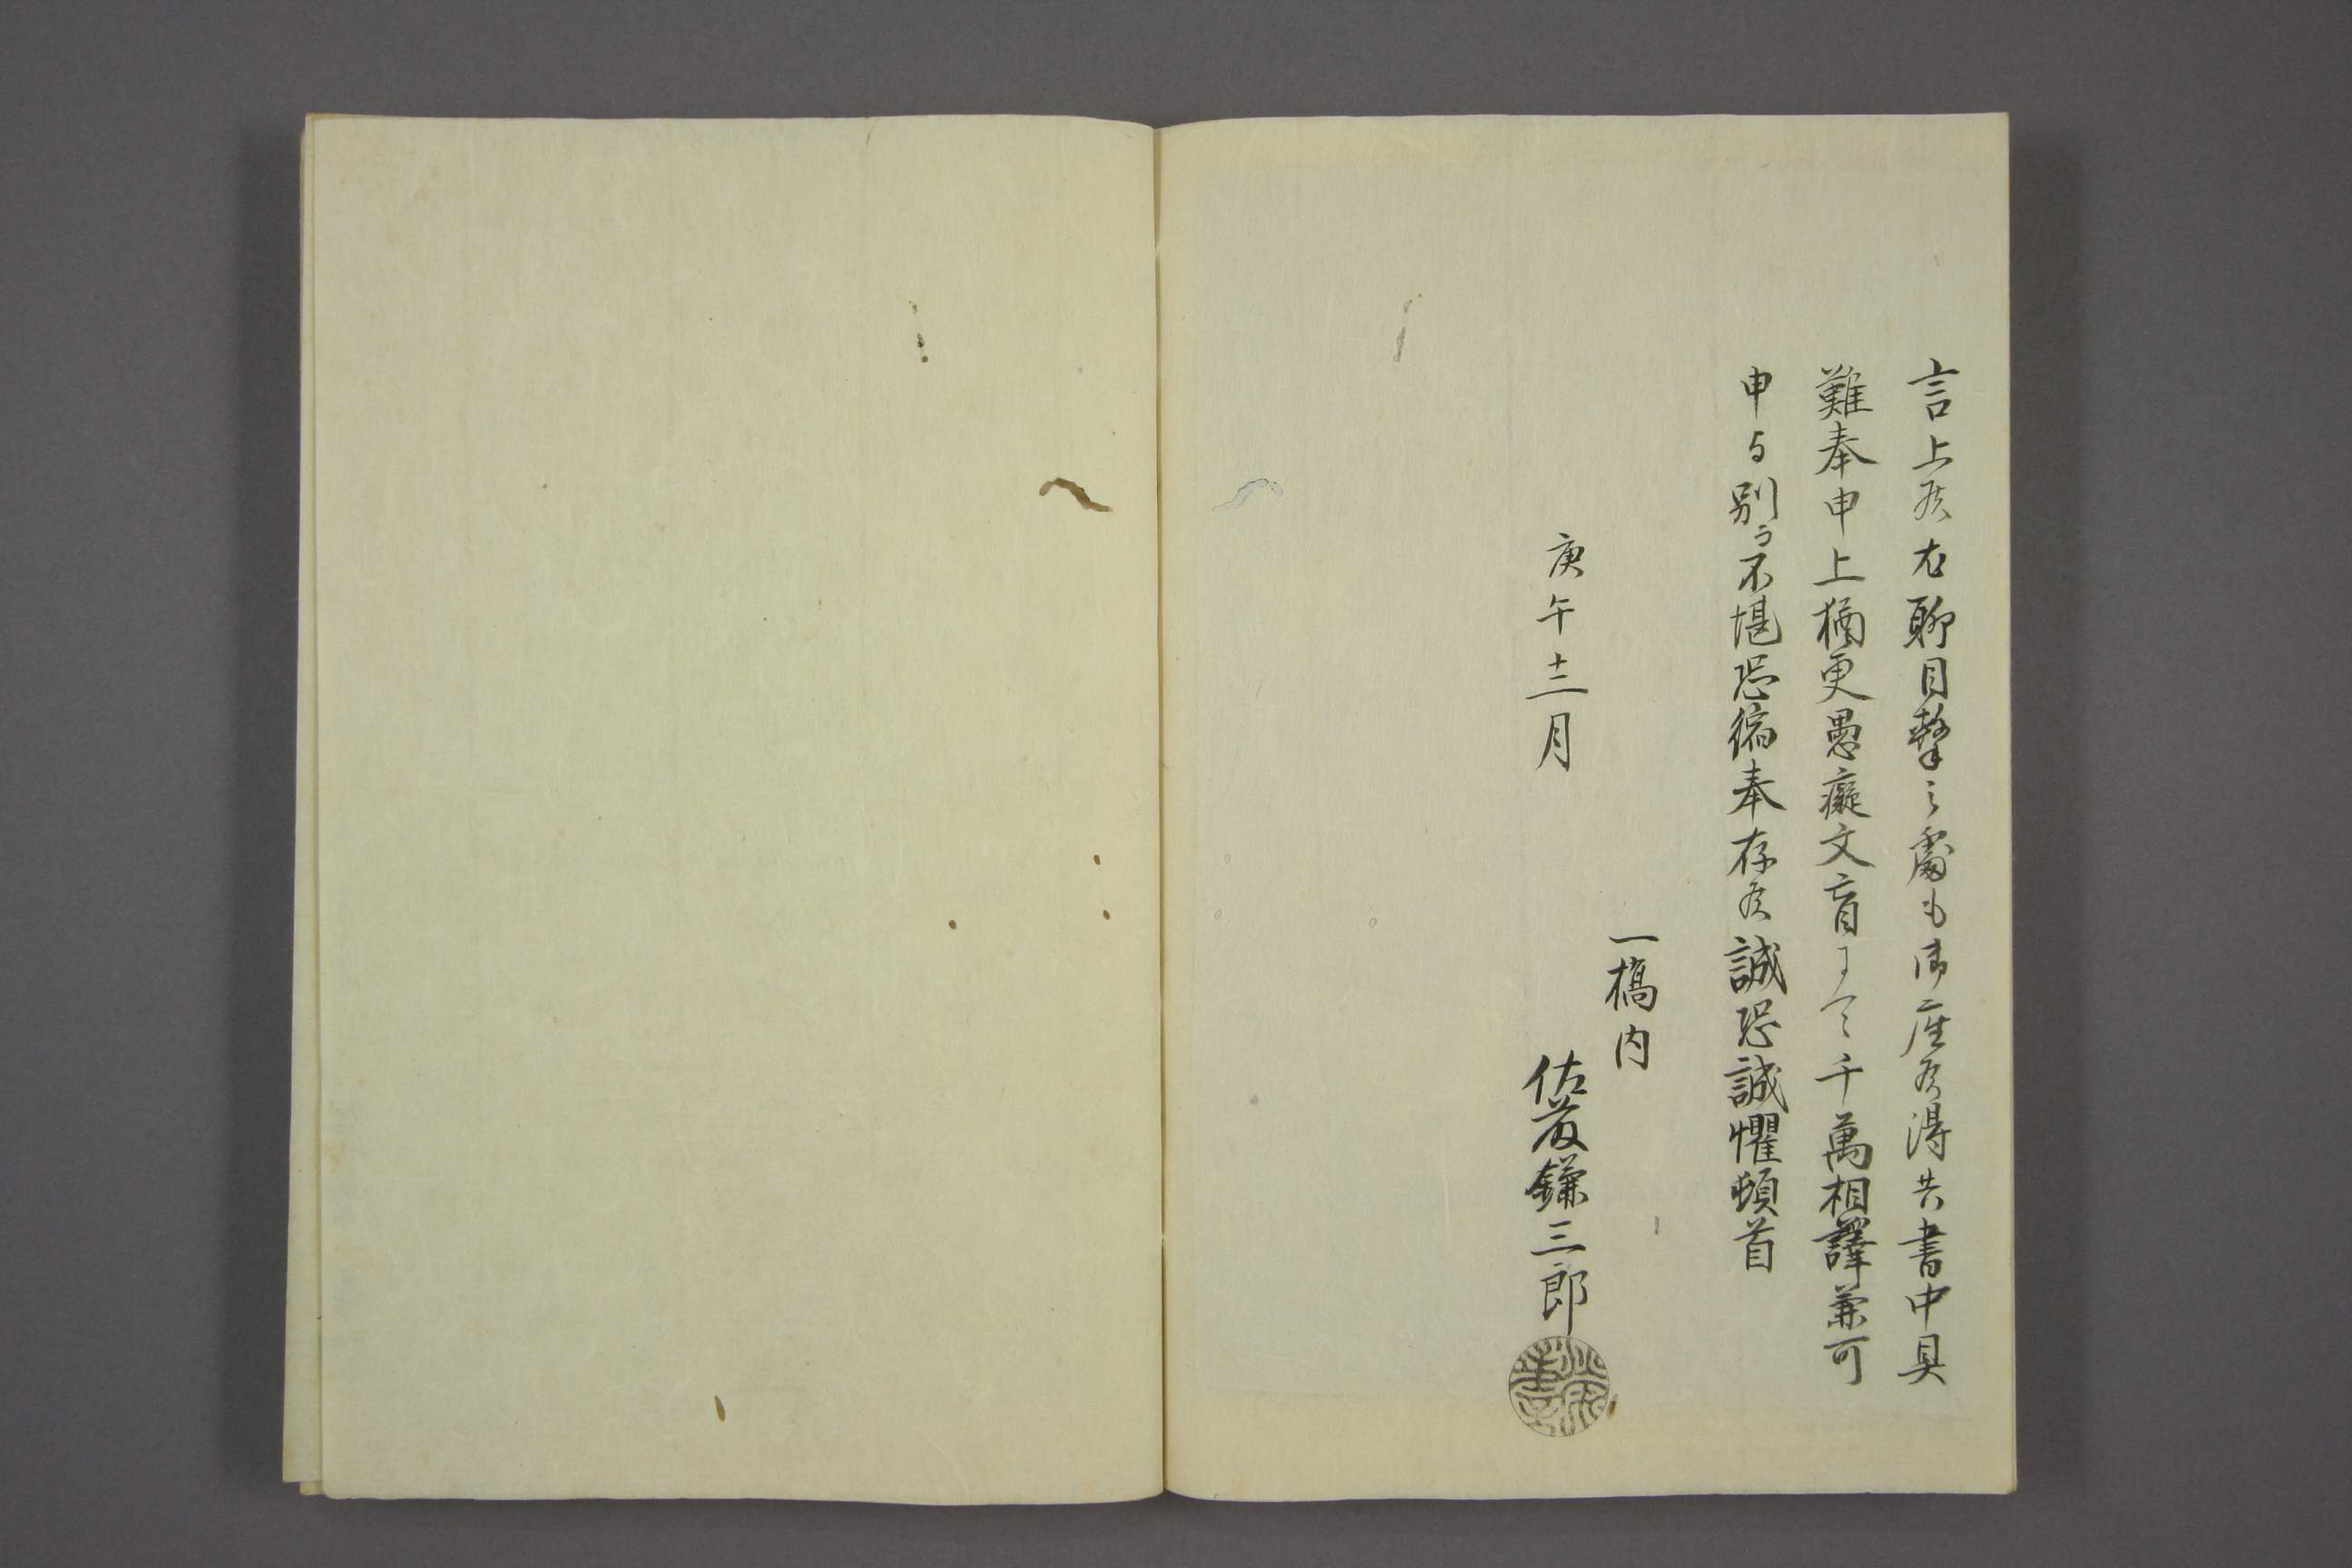 言上候右聊目撃之處も御座候得共書中具
難奉申上猶更愚癡文盲ニ而千萬相譯兼可
申与別而不堪恐縮奉存候誠恐誠懼頓首
一橋内
庚午十二月
佐藤鎌三郎